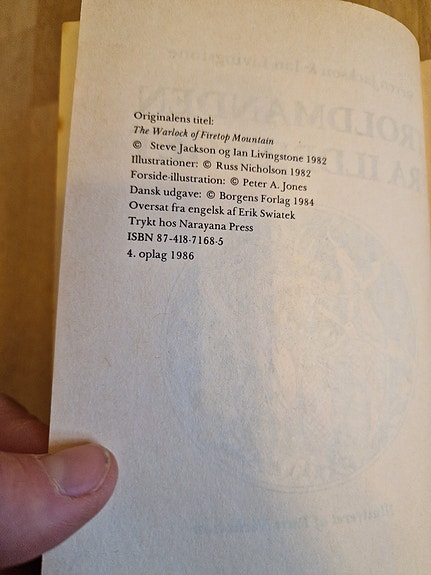 Originalens titel:
The Warlock of Firetop Mountain
© Steve Jackson og Ian Livingstone 1982
Illustrationer: © Russ Nicholson 1982
Forside-illustration: © Peter A. Jones
Dansk udgave: © Borgens Forlag 1984
Oversat fra engelsk af Erik Swiatek
Trykt hos Narayana Press
ISBN 87-418-7168-5
4. oplag 1986